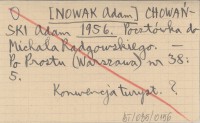 O [NOWAK Adam] CHOWAŃ-
SKI Adam 1956. Pocztówka do
Michała Radgowskiego. —
Po Prostu (Warszawa) nr 38:
5.
Konwencja turyst. ?